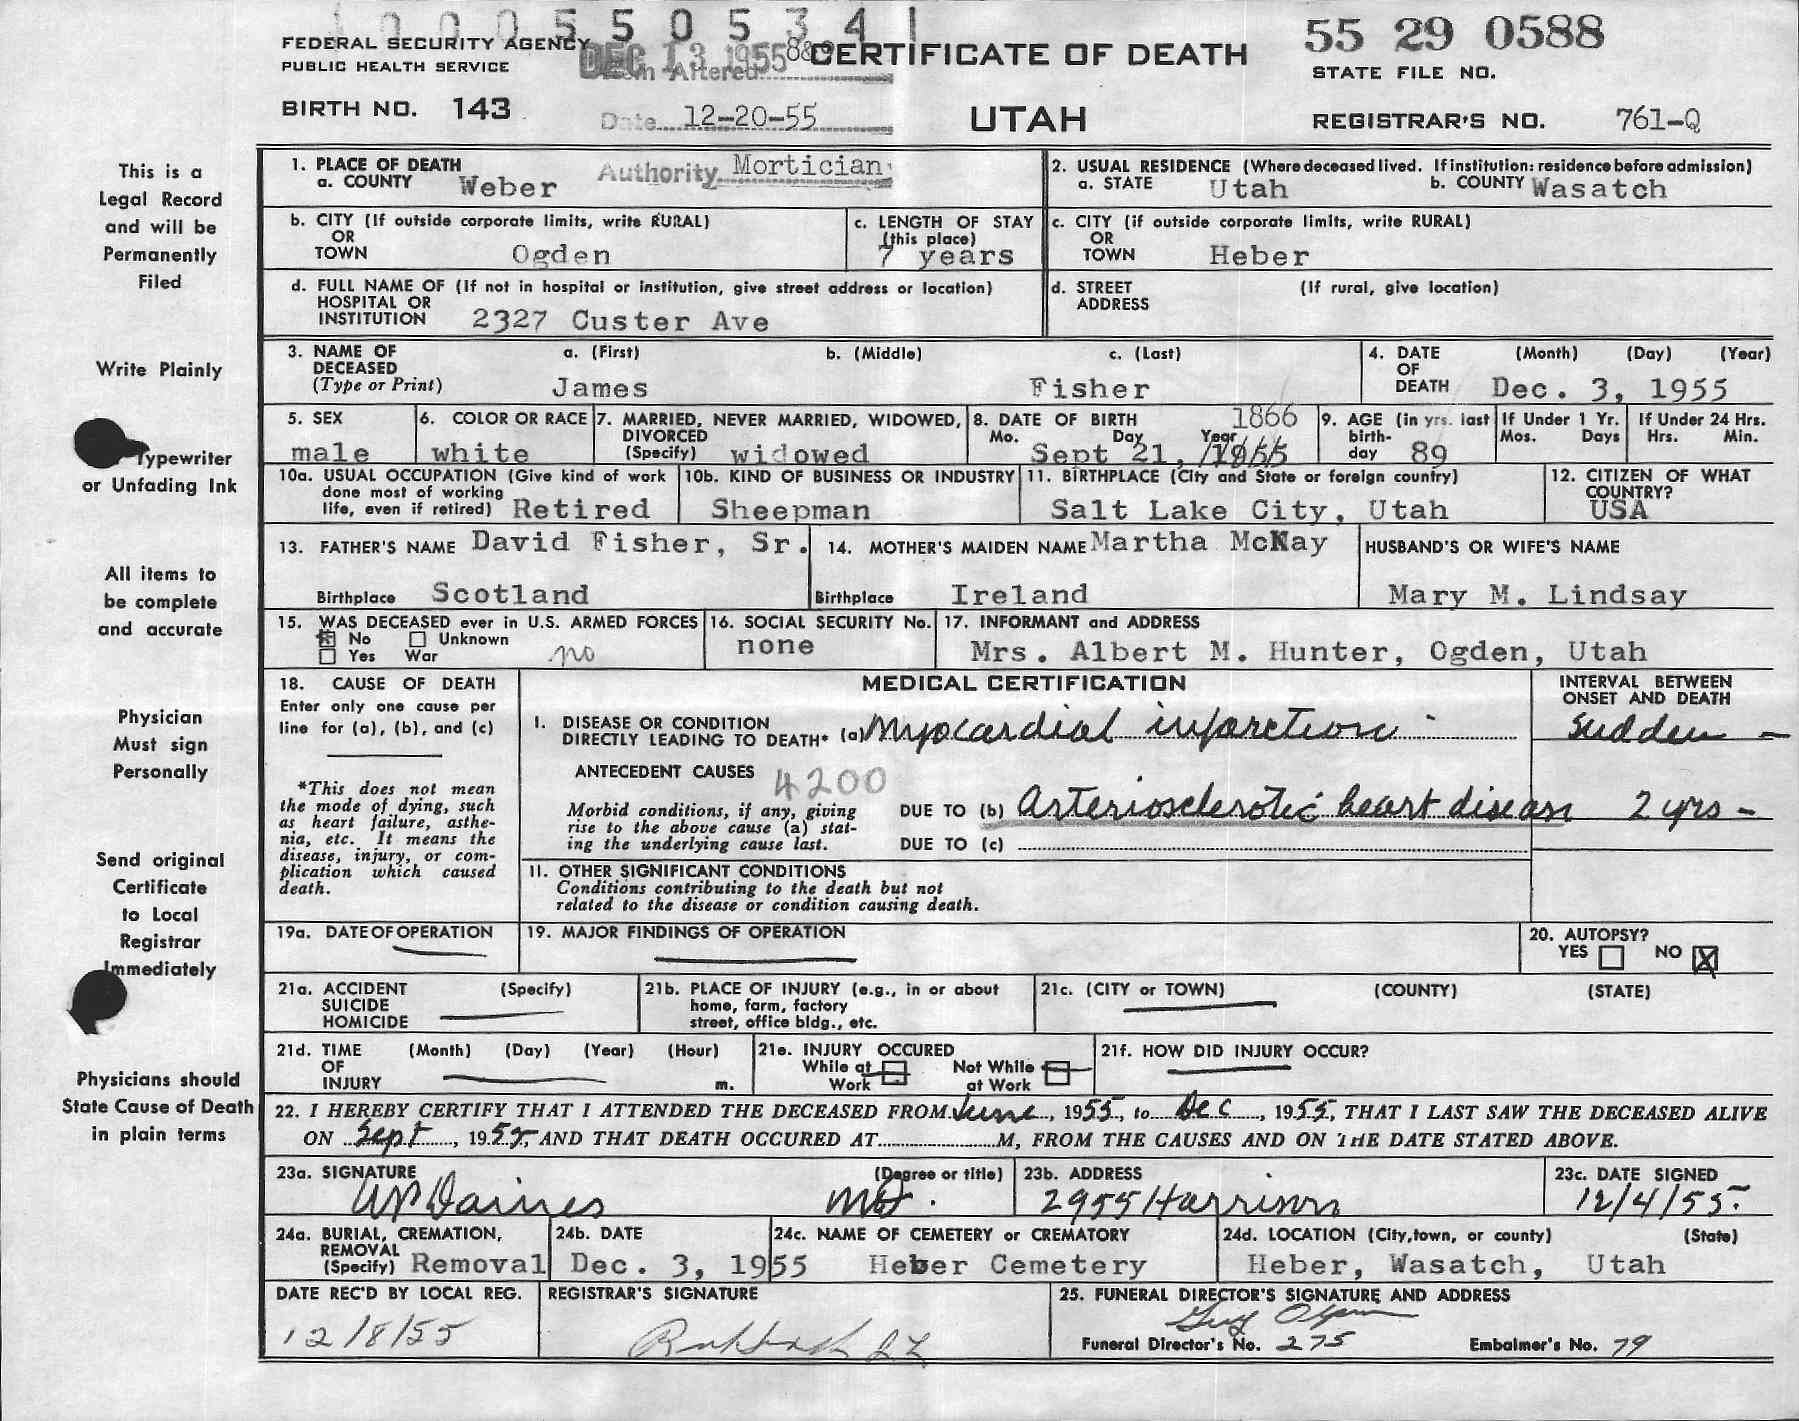 1000550534 1
FEDERAL SECURITY AGENCY
PUBLIC HEALTH SERVICE
DEC 13 1955
Item Altered 8&9
CERTIFICATE OF DEATH
55 29 0588
STATE FILE NO.
BIRTH NO. 143
Date 12-20-55
UTAH
REGISTRAR'S NO. 761-Q
This is a
Legal Record
and will be
Permanently
Filed
1. PLACE OF DEATH
a. COUNTY Weber
Authority Mortician
2. USUAL RESIDENCE (Where deceased lived. If institution: residence before admission)
a. STATE Utah b. COUNTY Wasatch
b. CITY (If outside corporate limits, write RURAL)
OR
TOWN Ogden
c. LENGTH OF STAY
(this place)
7 years
c. CITY (if outside corporate limits, write RURAL)
OR
TOWN Heber
d. FULL NAME OF (If not in hospital or institution, give street address or location)
HOSPITAL OR
INSTITUTION 2327 Custer Ave
d. STREET (If rural, give location)
ADDRESS
Write Plainly
3. NAME OF a. (First) b. (Middle) c. (Last)
DECEASED
(Type or Print) James Fisher
4. DATE (Month) (Day) (Year)
OF
DEATH Dec. 3, 1955
Typewriter
or Unfading Ink
5. SEX
male
6. COLOR OR RACE
white
7. MARRIED, NEVER MARRIED, WIDOWED,
DIVORCED
(Specify) widowed
8. DATE OF BIRTH 1866
Mo. Day Year
Sept 21,
9. AGE (in yrs. last
birth-
day 89
If Under 1 Yr.
Mos. Days
If Under 24 Hrs.
Hrs. Min.
10a. USUAL OCCUPATION (Give kind of work
done most of working
life, even if retired) Retired
10b. KIND OF BUSINESS OR INDUSTRY
Sheepman
11. BIRTHPLACE (City and State or foreign country)
Salt Lake City, Utah
12. CITIZEN OF WHAT
COUNTRY?
USA
All items to
be complete
and accurate
13. FATHER'S NAME David Fisher, Sr.
Birthplace Scotland
14. MOTHER'S MAIDEN NAME Martha McKay
Birthplace Ireland
HUSBAND'S OR WIFE'S NAME
Mary M. Lindsay
15. WAS DECEASED ever in U.S. ARMED FORCES
No Unknown
Yes War no
16. SOCIAL SECURITY No.
none
17. INFORMANT and ADDRESS
Mrs. Albert M. Hunter, Ogden, Utah
Physician
Must sign
Personally
18. CAUSE OF DEATH
Enter only one cause per
line for (a), (b), and (c)
*This does not mean
the mode of dying, such
as heart failure, asthe-
nia, etc. It means the
disease, injury, or com-
plication which caused
death.
MEDICAL CERTIFICATION
INTERVAL BETWEEN
ONSET AND DEATH
I. DISEASE OR CONDITION
DIRECTLY LEADING TO DEATH* (a) Myocardial infarction - sudden -
ANTECEDENT CAUSES 4200
Morbid conditions, if any, giving
rise to the above cause (a) stat-
ing the underlying cause last.
DUE TO (b) Arteriosclerotic heart disease 2 yrs -
DUE TO (c)
11. OTHER SIGNIFICANT CONDITIONS
Conditions contributing to the death but not
related to the disease or condition causing death.
Send original
Certificate
to Local
Registrar
Immediately
19a. DATE OF OPERATION
19. MAJOR FINDINGS OF OPERATION
20. AUTOPSY?
YES NO X
21a. ACCIDENT (Specify)
SUICIDE
HOMICIDE
21b. PLACE OF INJURY (e.g., in or about
home, farm, factory
street, office bldg., etc.
21c. (CITY or TOWN) (COUNTY) (STATE)
21d. TIME (Month) (Day) (Year) (Hour)
OF
INJURY m.
21e. INJURY OCCURED
While at Not While
Work at Work
21f. HOW DID INJURY OCCUR?
Physicians should
State Cause of Death
in plain terms
22. I HEREBY CERTIFY THAT I ATTENDED THE DECEASED FROM June, 1955, to Dec, 1955, THAT I LAST SAW THE DECEASED ALIVE
ON Sept, 1955, AND THAT DEATH OCCURED AT M, FROM THE CAUSES AND ON THE DATE STATED ABOVE.
23a. SIGNATURE (Degree or title)
WP Daines MD.
23b. ADDRESS
2955 Harrison
23c. DATE SIGNED
12/4/55.
24a. BURIAL, CREMATION,
REMOVAL
(Specify) Removal
24b. DATE
Dec. 3, 1955
24c. NAME OF CEMETERY or CREMATORY
Heber Cemetery
24d. LOCATION (City, town, or county) (State)
Heber, Wasatch, Utah
DATE REC'D BY LOCAL REG.
12/8/55
REGISTRAR'S SIGNATURE
25. FUNERAL DIRECTOR'S SIGNATURE AND ADDRESS
Guy Olpin
Funeral Director's No. 275 Embalmer's No. 79